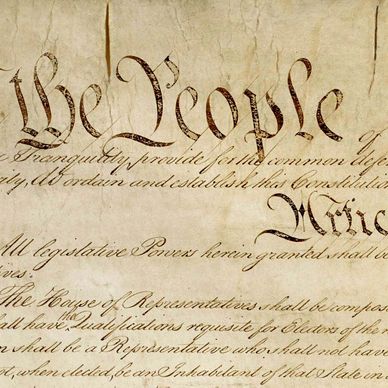 the People of
Tranquility, provide for the common defe
do ordain and establish this Constitutio
Artic
All legislative Powers herein granted shall be
ives.
The House of Representatives shall be compos
all have the Qualifications requisite for Electors of the
n shall be a Representative who shall not have
t, when elected, be an Inhabitant of that State in